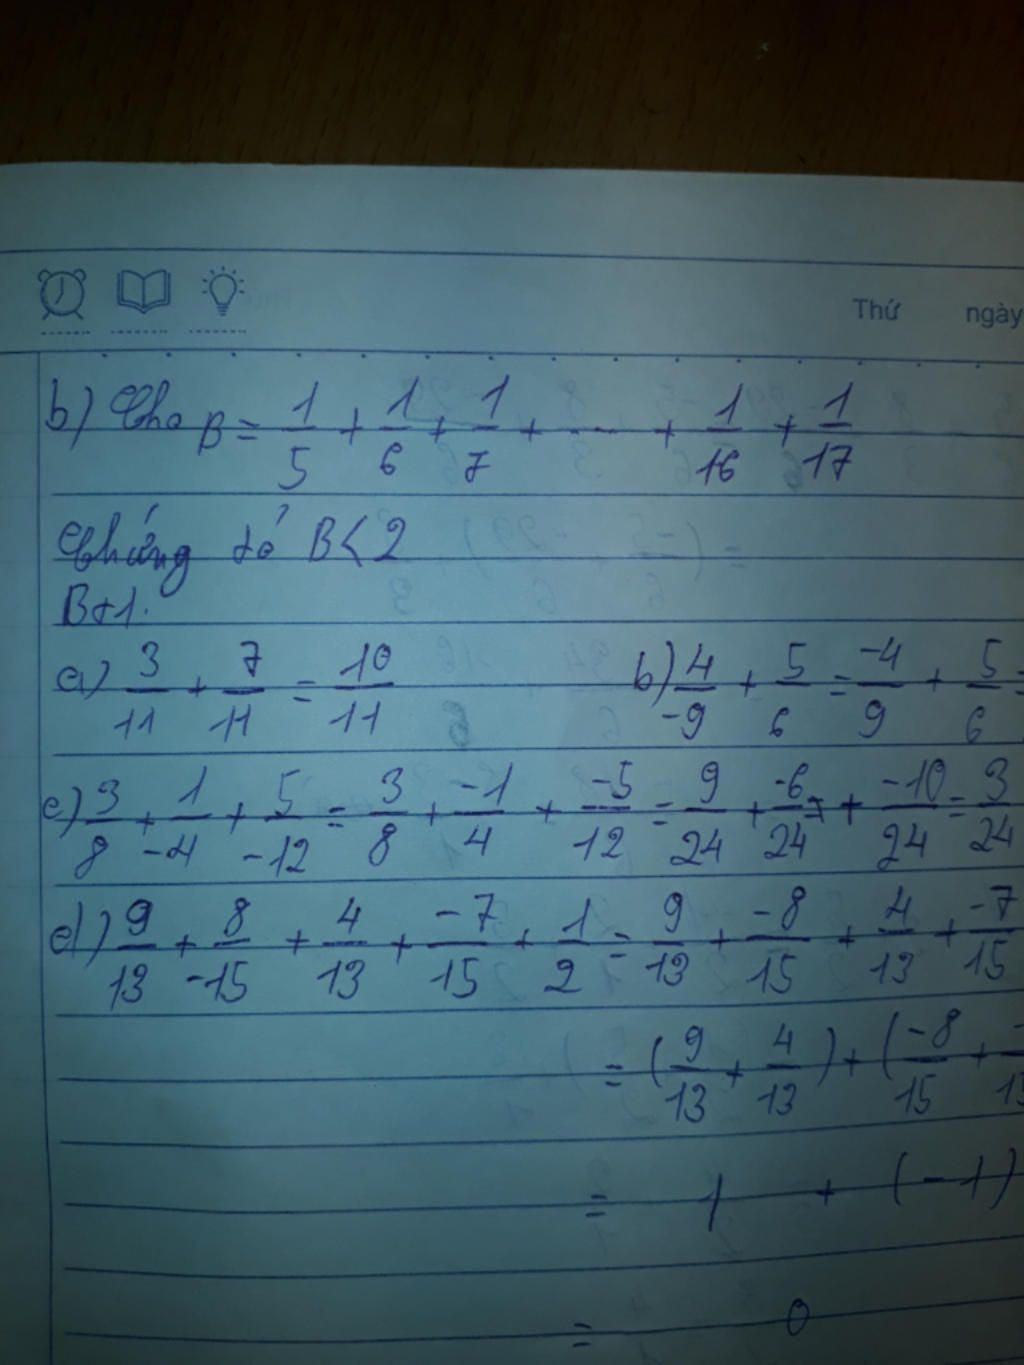 Thứ ngày
b) Cho B = 1/5 + 1/6 + 1/7 + ... + 1/16 + 1/17
Chứng tỏ B < 2
B+1.
a) 3/11 + 7/11 = 10/11 b) 4/-9 + 5/6 = -4/9 + 5/6 =
c) 3/8 + 1/-4 + 5/-12 = 3/8 + -1/4 + -5/12 = 9/24 + -6/24 + -10/24 = 3/24
d) 9/13 + 8/-15 + 4/13 + -7/15 + 1/2 = 9/13 + -8/15 + 4/13 + -7/15
= (9/13 + 4/13) + (-8/15 +
= 1 + (-1)
= 0